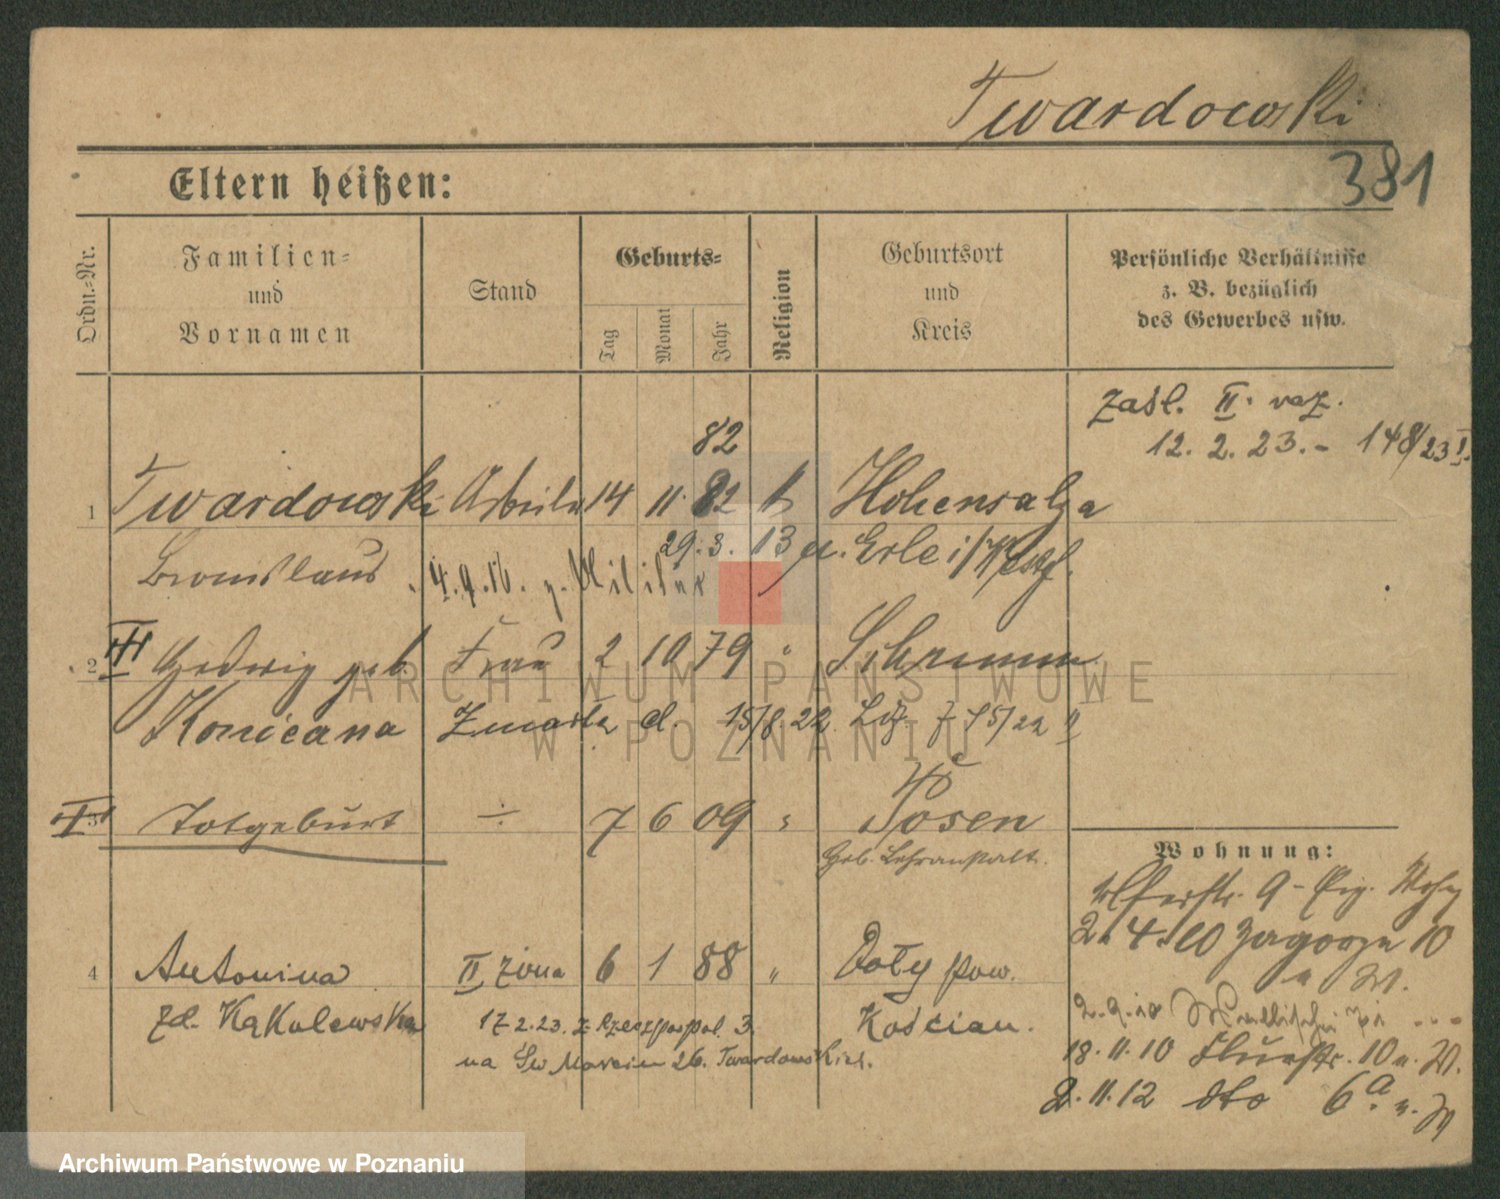 Twardowski
381
Eltern heißen:
Ordn.-Nr.
Familien-
und
Vornamen
Stand
Geburts-
Tag
Monat
Jahr
Religion
Geburtsort
und
Kreis
Persönliche Verhältnisse
z. B. bezüglich
des Gewerbes usw.
zaśl. II. raz.
12. 2. 23.- 148/23 I.
82
1 Twardowski 14 11. 82 k Hohensalza
29. 3. 13 Erle i/Westf.
Bronislaus 4.9.16. z. Militär
III 2 Hedwig geb. Frau 2 10 79 " Schrimm
Konieczna Zmarła d. 15/8.22
I 3 Totgeburt ÷ 7 6 09 " Posen
Geb. Lehranstalt.
Wohnung:
9
2. 4. 10 10
4 Antonina II żona 6 1 88 " pow.
zd. Kąkolewska 17.2.23. z 3. Kościan.
na Św Marcin 26. Twardowskiej.
18. 11. 10 10
2. 11. 12 dto 6a
ARCHIWUM PAŃSTWOWE
W POZNANIU
Archiwum Państwowe w Poznaniu